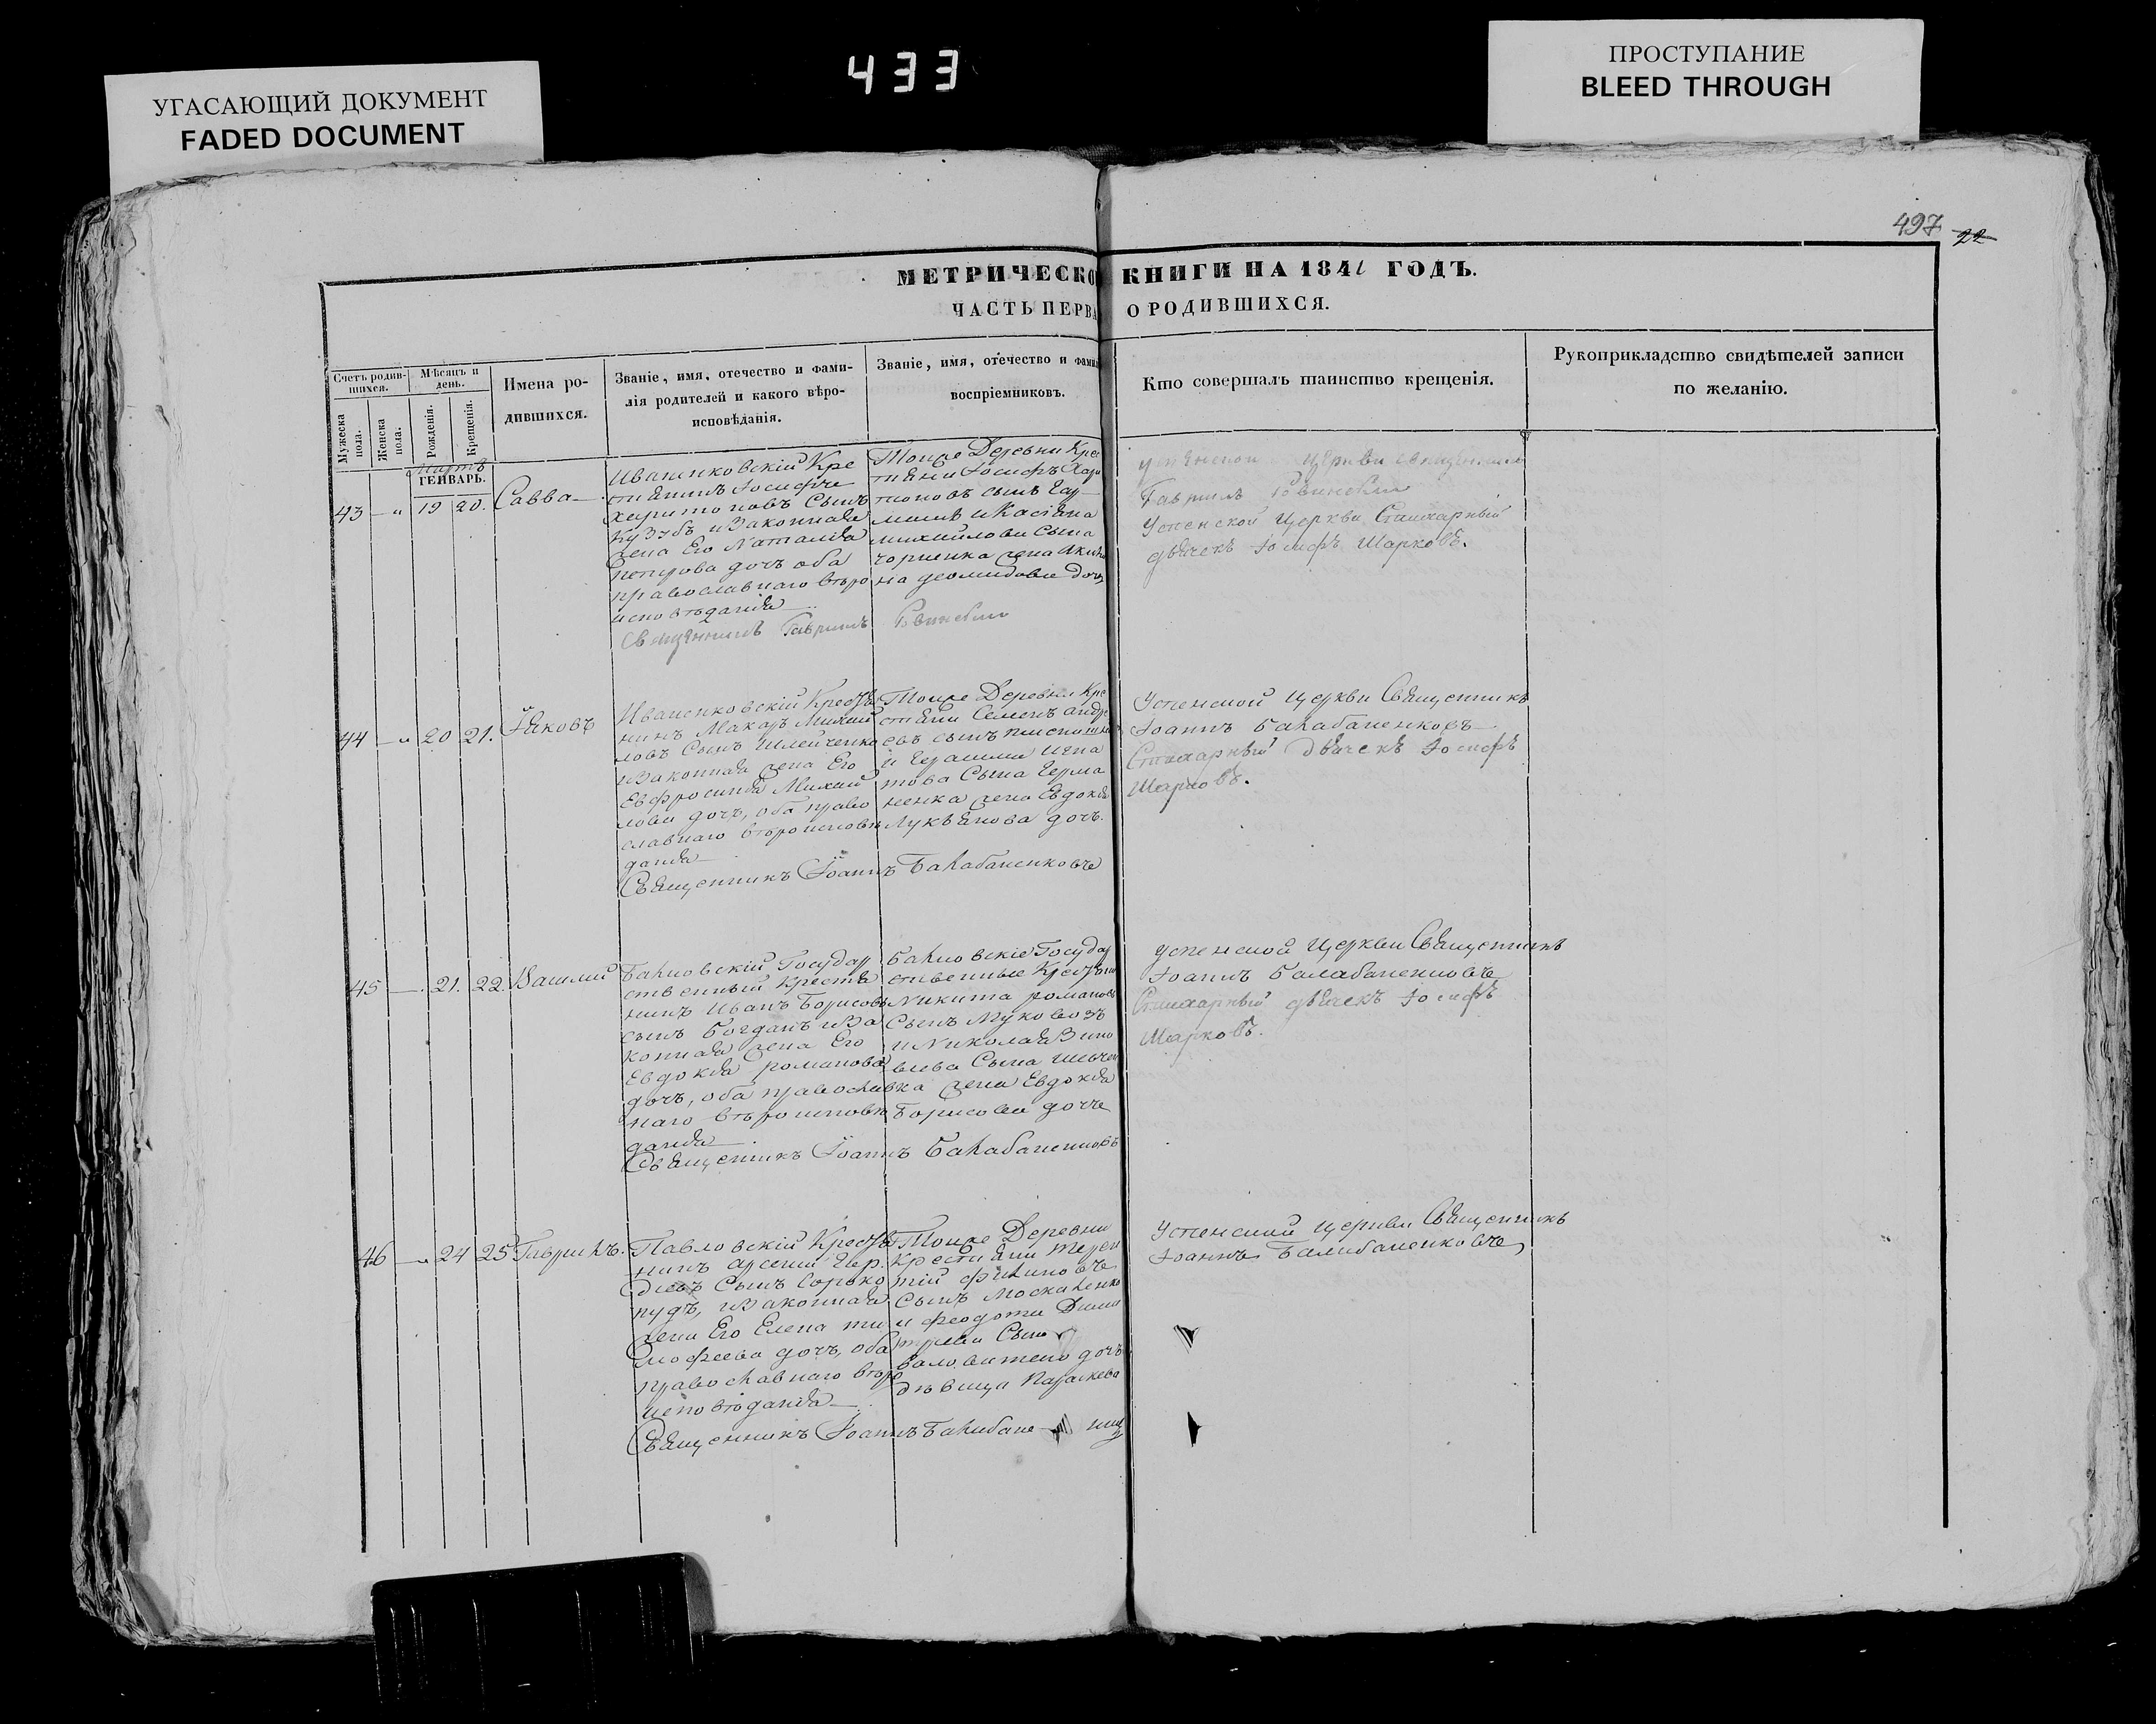 УГАСАЮЩИЙ ДОКУМЕНТ
FADED DOCUMENT
433
ПРОСТУПАНИЕ
BLEED THROUGH
497
22
МЕТРИЧЕСКО КНИГИ НА 1841 ГОДЪ.
ЧАСТЬ ПЕРВА О РОДИВШИХСЯ.
Счетъ родив-
шихся.
Мужеска
пола.
Женска
пола.
Мѣсяцъ и
день.
Рожденія.
Крещенія.
Имена ро-
дившихся.
Званіе, имя, отечество и фами-
лія родителей и какого вѣро-
исповѣданія.
Званіе, имя, отечество и фами
воспріемниковъ.
Кто совершалъ таинство крещенія.
Рукоприкладство свидѣтелей записи
по желанію.
Мартъ
ГЕНВАРЬ.
43 19 20. Савва
Иваненковскій Кре
стянинъ Іосифъ
Харитоновъ Сынъ
изаконная
жена Его Наталія
петрова дочь оба
православнаго вѣро
исповѣданія
Священникъ Гавриилъ
Тоиже Деревни Кре
стяни Іосифъ Хари
тоновъ сынъ
и Касіяна
михайлова Сына
жена
дочь
Успенской Церкви священникъ
Гавриилъ
Успенской Церкви Стихарный
дьячекъ Іосифъ Шарковъ.
44 20 21. Іяковъ
Иваненковскій Крестья
нинъ Макаръ Михай
ловъ Сынъ Шлейченко
изаконная жена Его
Евфросинія Михай
лова дочь, оба право
славнаго вѣроисповѣ
данія
Священникъ Іоаннъ Балабаненковъ
Тоиже Деревни Кре
стяни Семенъ андре
евъ сынъ
и Герасима Игна
това Сына Герма
ненка жена Евдокія
Лукьянова дочь.
Успенской Церкви Священникъ
Іоаннъ Балабаненковъ
Стихарный Дьячекъ Іосифъ
Шарковъ.
45 21. 22. Василий
Государ
ственный Крестя
нинъ Иванъ Борисовъ
сынъ Богданъ иза
конная жена Его
Евдокія романова
дочь, оба православ
наго вѣроисповѣ
данія
Священникъ Іоаннъ Балабаненковъ
Государ
ственные Крестяни
Никита романовъ
Сынъ Муковозъ
и Николая Зино
виева Сына
жена Евдокія
Борисова дочь
Успенской Церкви Священникъ
Іоаннъ Балабаненковъ
Стихарный дьячекъ Іосифъ
Шарковъ.
46 24 25 Гавриилъ.
Павловскій Крестья
нинъ Арсений
Сынъ Сороко
пудъ, изаконная
жена Его Елена ти
мофеева дочь, оба
православнаго вѣро
исповѣданія
Священникъ Іоаннъ
Тоиже Деревни
Крестяни Терен
тій Филиповъ
Сынъ Москаленко
и феодота Дими
триева Сына
дочь
дѣвица Параскева
Успенской Церкви Священникъ
Іоаннъ Балабаненковъ